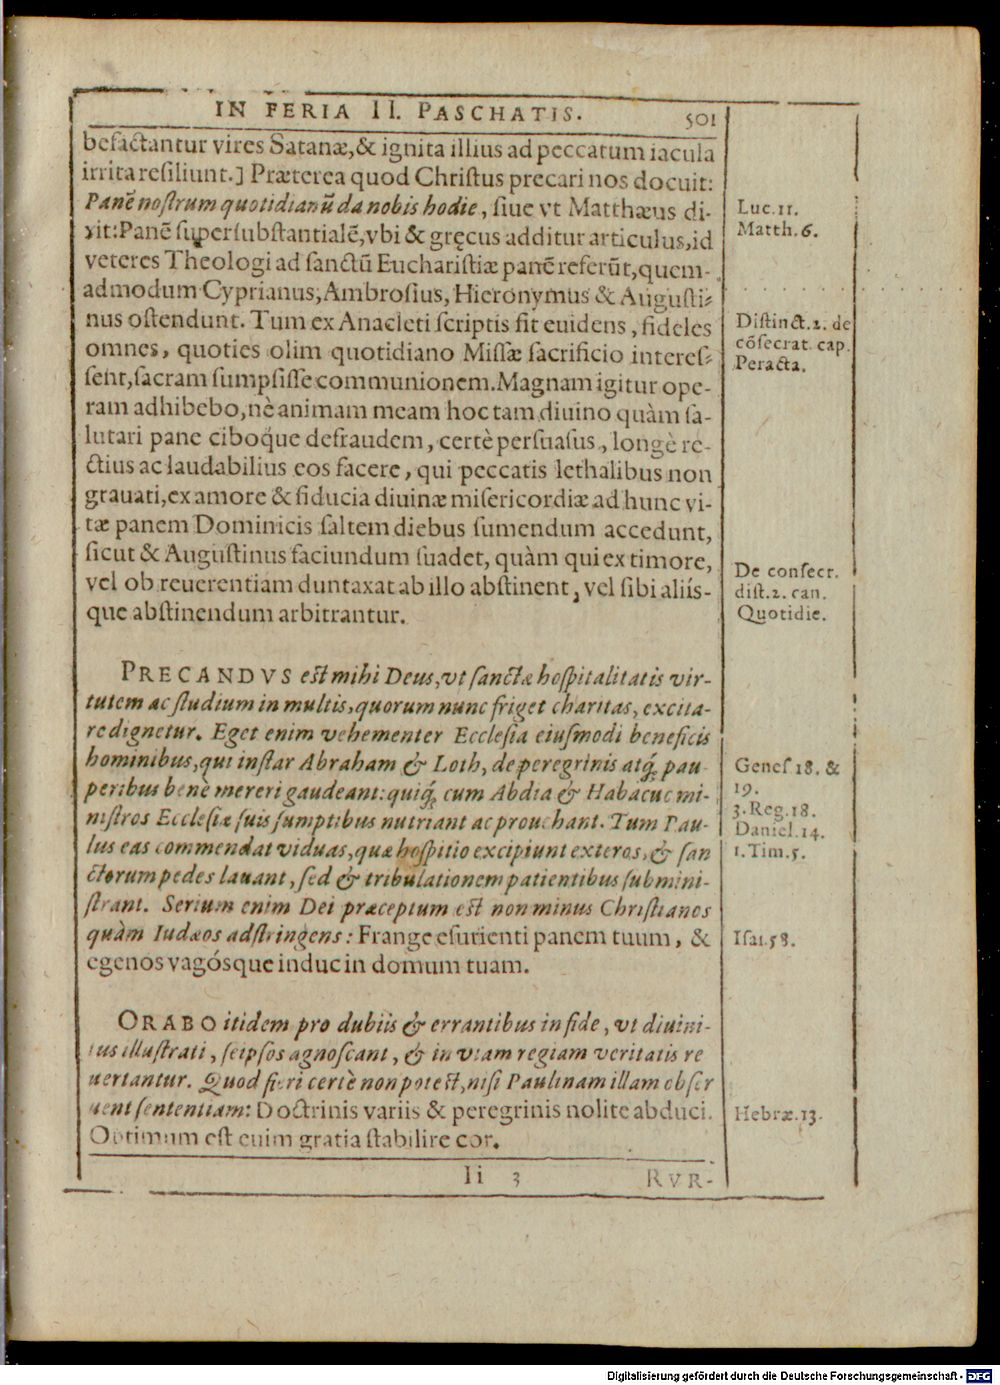 IN FERIA II. PASCHATIS. 501
befactantur vires Satanæ,& ignita illius ad peccatum iacula
irrita resiliunt.] Præterea quod Christus precari nos docuit:
Panē nostrum quotidianũ da nobis hodie, siue vt Matthæus di-
xit:Panē supersubstantialē,vbi & gręcus additur articulus,id
veteres Theologi ad sanctũ Eucharistiæ panē referũt,quem-
admodum Cyprianus, Ambrosius, Hieronymus & Augusti-
nus ostendunt. Tum ex Anacleti scriptis fit euidens, fideles
omnes, quoties olim quotidiano Missæ sacrificio interes-
sent,sacram sumpsisse communionem. Magnam igitur ope-
ram adhibebo, nè animam meam hoc tam diuino quàm sa-
lutari pane ciboq́ue defraudem, certè persuasus, longè re-
ctius ac laudabilius eos facere, qui peccatis lethalibus non
grauati, ex amore & fiducia diuinæ misericordiæ ad hunc vi-
tæ panem Dominicis saltem diebus sumendum accedunt,
sicut & Augustinus faciundum suadet, quàm qui ex timore,
vel ob reuerentiam duntaxat ab illo abstinent, vel sibi aliís-
que abstinendum arbitrantur.
PRECANDVS est mihi Deus,vt sanctæ hospitalitatis vir-
tutem ac studium in multis, quorum nunc friget charitas, excita-
re dignetur. Eget enim vehementer Ecclesia eiusmodi beneficis
hominibus, qui instar Abraham & Loth, de peregrinis atq́; pau
peribus benè mereri gaudeant: quiq́; cum Abdia & Habacuc mi-
nistros Ecclesiæ suis sumptibus nutriant ac prouehant. Tum Pau-
lus eas commendat viduas, quæ hospitio excipiunt exteros, & san
ctorum pedes lauant, sed & tribulationem patientibus submini-
strant. Serium enim Dei præceptum est non minus Christianos
quàm Iudæos adstringens: Frange esurienti panem tuum, &
egenos vagósque induc in domum tuam.
ORABO itidem pro dubiis & errantibus in fide, vt diuini-
tus illustrati, seipsos agnoscant, & in viam regiam veritatis re
uertantur. Quod fieri certè non potest, nisi Paulinam illam obser
uent sententiam: Doctrinis variis & peregrinis nolite abduci.
Optimum est enim gratia stabilire cor.
Ii 3 RVR-
Luc. 11.
Matth. 6.
Distinct. 2. de
cōsecrat. cap.
Peracta.
De consecr.
dist. 2. can.
Quotidie.
Genes 18. &
19.
3. Reg. 18.
Daniel. 14.
1. Tim. 5.
Isai. 58.
Hebræ. 13.
Digitalisierung gefördert durch die Deutsche Forschungsgemeinschaft - DFG